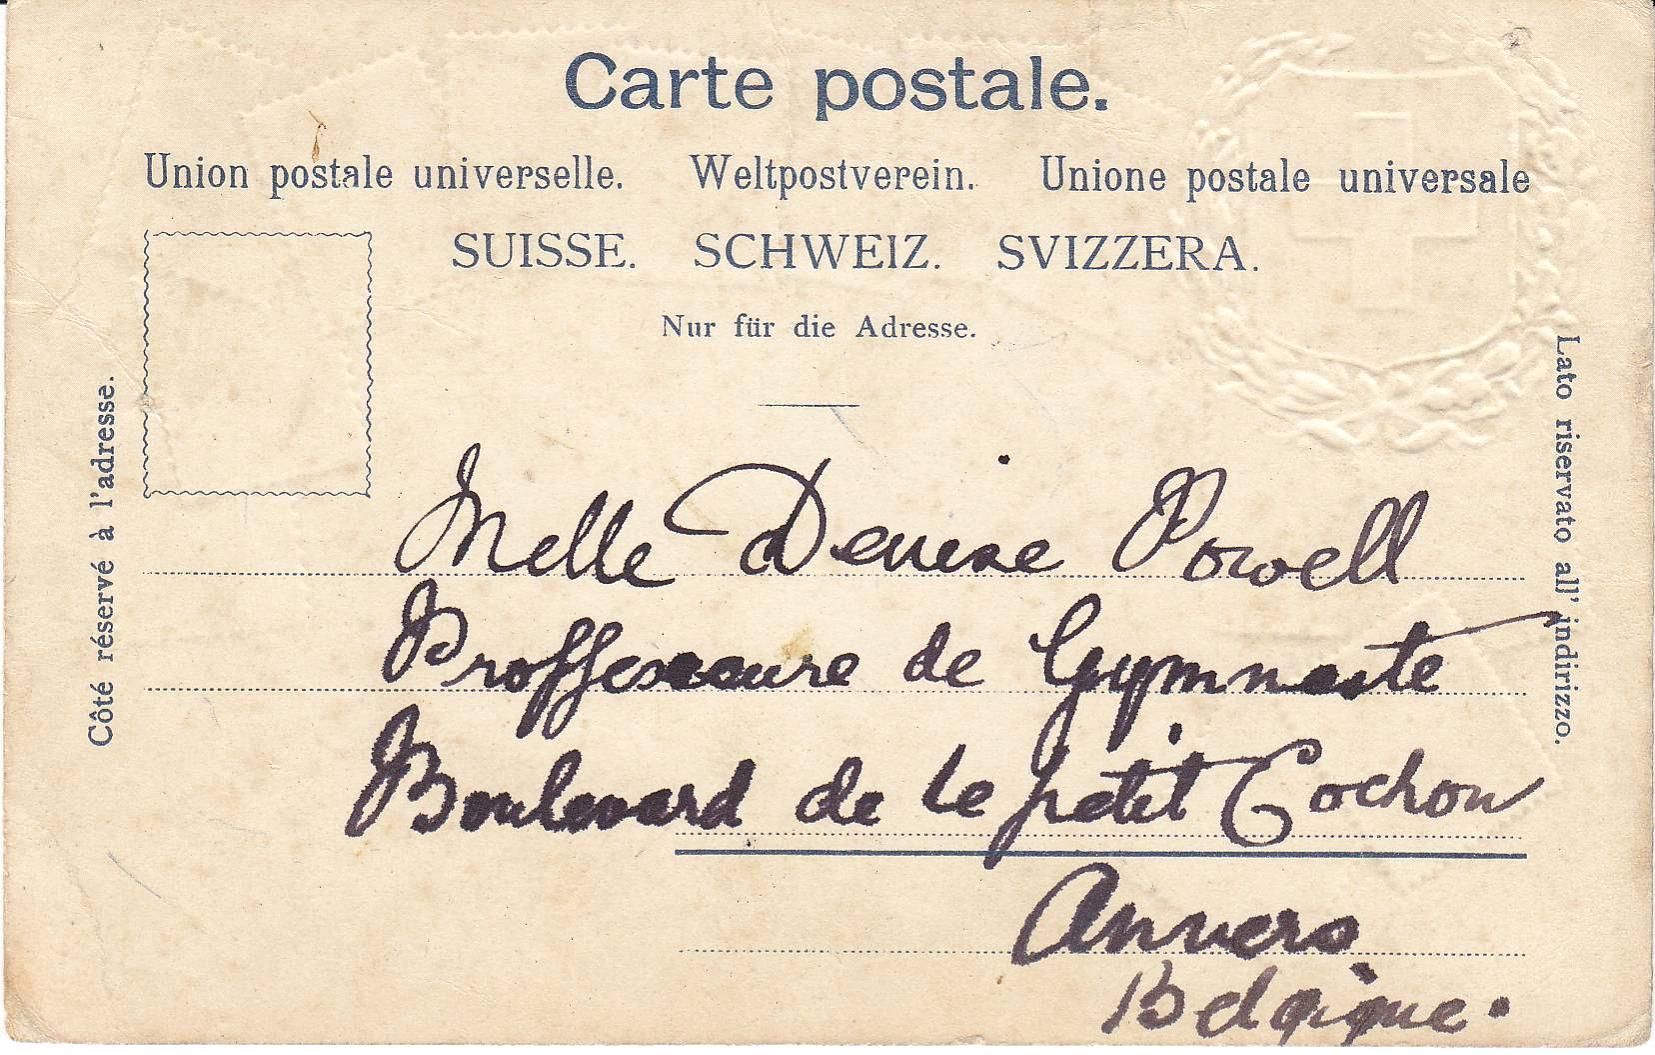 Carte postale.
Union postale universelle. Weltpostverein. Unione postale universale
SUISSE. SCHWEIZ. SVIZZERA.
Nur für die Adresse.
Côté réservé à l'adresse.
Lato riservato all' indirizzo.
Melle Denise Powell
Proffesseure de Gymnaste
Boulevard de Le petit Cochon
Anvers
Belgique.